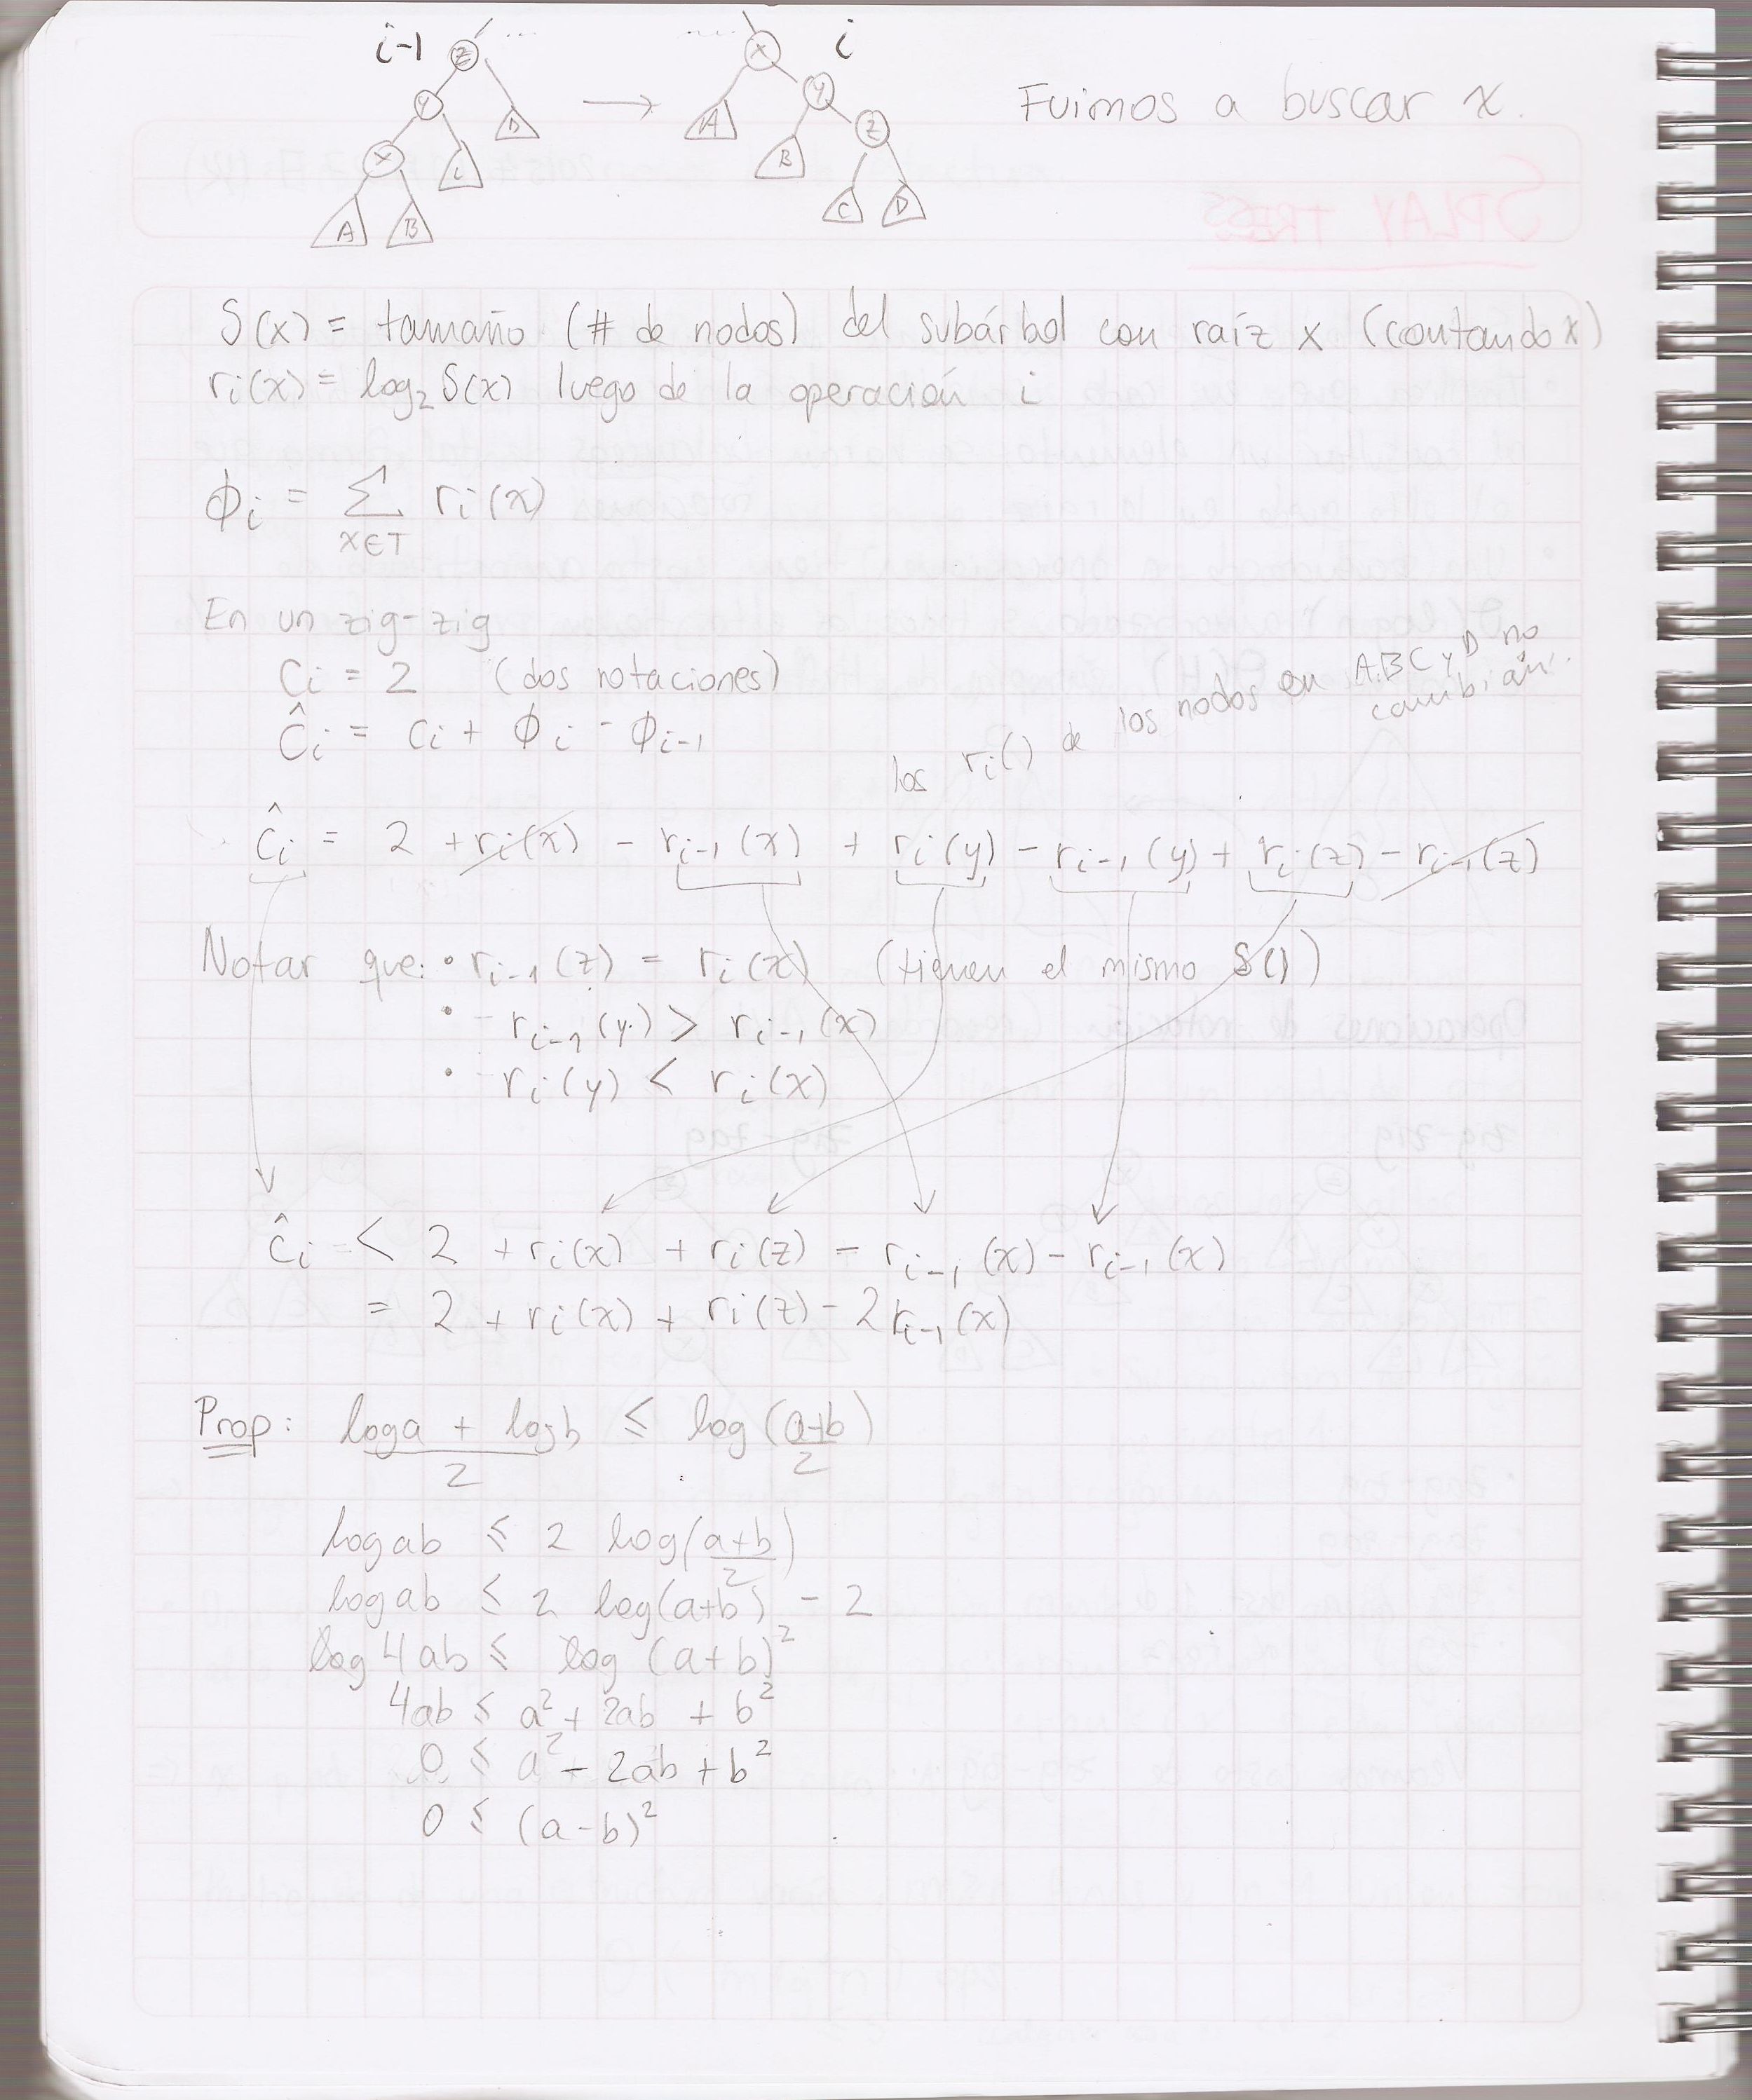 i-1 z ... ... x i
y D → A y Fuimos a buscar x.
x C B z
A B C D
S(x) = tamaño (# de nodos) del subárbol con raíz x (contando x)
ri(x) = log₂ S(x) luego de la operación i
ϕi = Σ ri(x)
x∈T
En un zig-zig
Ci = 2 (dos rotaciones)
Ĉi = ci + ϕi - ϕi-1
los ri() de los nodos en A,B C y D no cambian.
ĉi = 2 + ri(x) - ri-1(x) + ri(y) - ri-1(y) + ri(z) - ri-1(z)
Notar que: • ri-1(z) = ri(x) (tienen el mismo S())
• ri-1(y) > ri-1(x)
• ri(y) < ri(x)
ĉi < 2 + ri(x) + ri(z) - ri-1(x) - ri-1(x)
= 2 + ri(x) + ri(z) - 2ri-1(x)
Prop: (loga + logb)/2 ≤ log((a+b)/2)
log ab ≤ 2 log((a+b)/2)
log ab ≤ 2 log(a+b) - 2
log 4ab ≤ log (a+b)²
4ab ≤ a² + 2ab + b²
0 ≤ a² - 2ab + b²
0 ≤ (a-b)²
SPLAY TREES